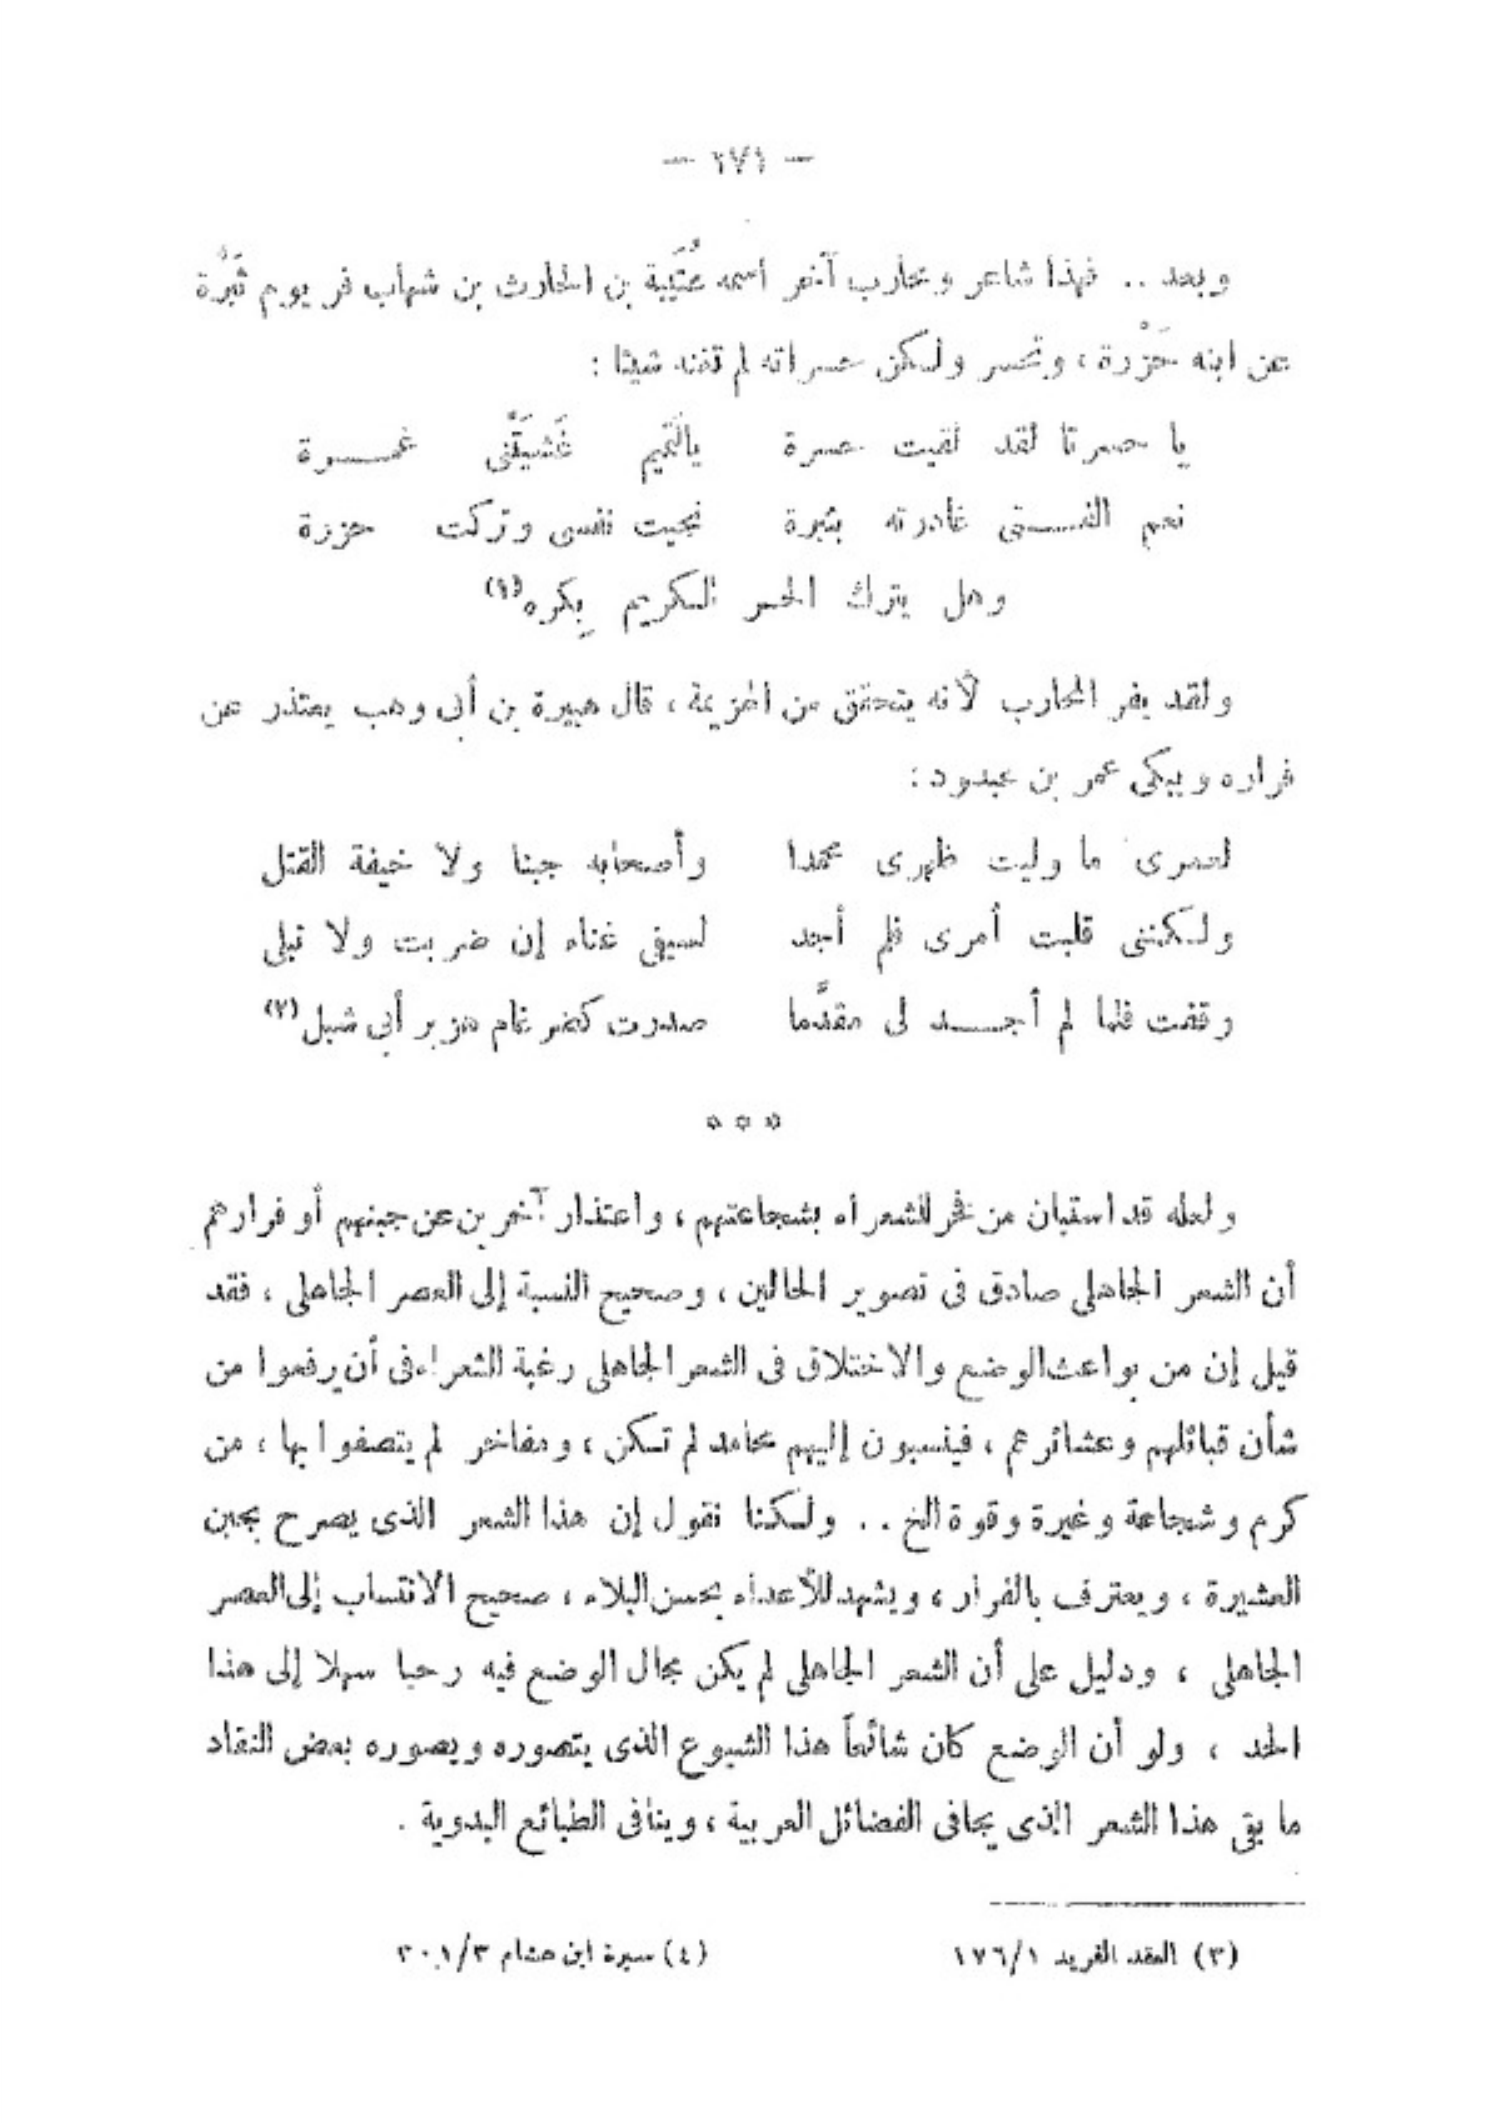 — ٢٧١ —
وبعد .. فهذا شاعر ومحارب آخر اسمه عُتَيبة بن الحارث بن شهاب فر يوم ثَبْرَة
عن ابنه حَزْرة ، وتحسر ولكن حسراته لم تفده شيئا :
يا حسرتا لقد لقيت حسرة يالَتميم غَشيَتْنى غمـــرة
نعم الفـــتى غادرته بثبرة نجيت نفسى وتركت حزرة
وهل يترك الحر الكريم بِكره(١)
ولقد يفر المحارب لأنه يتحقق من الهزيمة ، قال هبيرة بن أبى وهب يعتذر عن
فراره ويبكى عمر بن عبدود :
لعمرى ما وليت ظهرى محمدا وأصحابه جبنا ولا خيفة القتل
ولكننى قلبت أمرى فلم أجد لسيفى غناء إن ضربت ولا نبلى
وقفت فلما لم أجـــد لى مقدَّما صدرت كضرغام هزبر أبى شبل(٢)
* * *
ولعله قد استبان من فخر الشعراء بشجاعتهم ، واعتذار آخرين عن جبنهم أو فرارهم
أن الشعر الجاهلى صادق فى تصوير الحالين ، وصحيح النسبة إلى العصر الجاهلى ، فقد
قيل إن من بواعث الوضع والاختلاق فى الشعر الجاهلى رغبة الشعراء فى أن يرفعوا من
شأن قبائلهم وعشائرهم ، فينسبون إليهم محامد لم تكن ، ومفاخر لم يتصفوا بها ، من
كرم وشجاعة وغيرة وقوة الخ .. ولكنا نقول إن هذا الشعر الذى يصرح بجبن
العشيرة ، ويعترف بالفرار ، ويشهد للأعداء بحسن البلاء ، صحيح الانتساب إلى العصر
الجاهلى ، ودليل على أن الشعر الجاهلى لم يكن مجال الوضع فيه رحبا سهلا إلى هذا
الحد ، ولو أن الوضع كان شائعاً هذا الشيوع الذى يتصوره ويصوره بعض النقاد
ما بقى هذا الشعر الذى يجافى الفضائل العربية ، وينافى الطبائع البدوية .
(٣) العقد الفريد ١/١٧٦ (٤) سيرة ابن هشام ٣/٣٠١